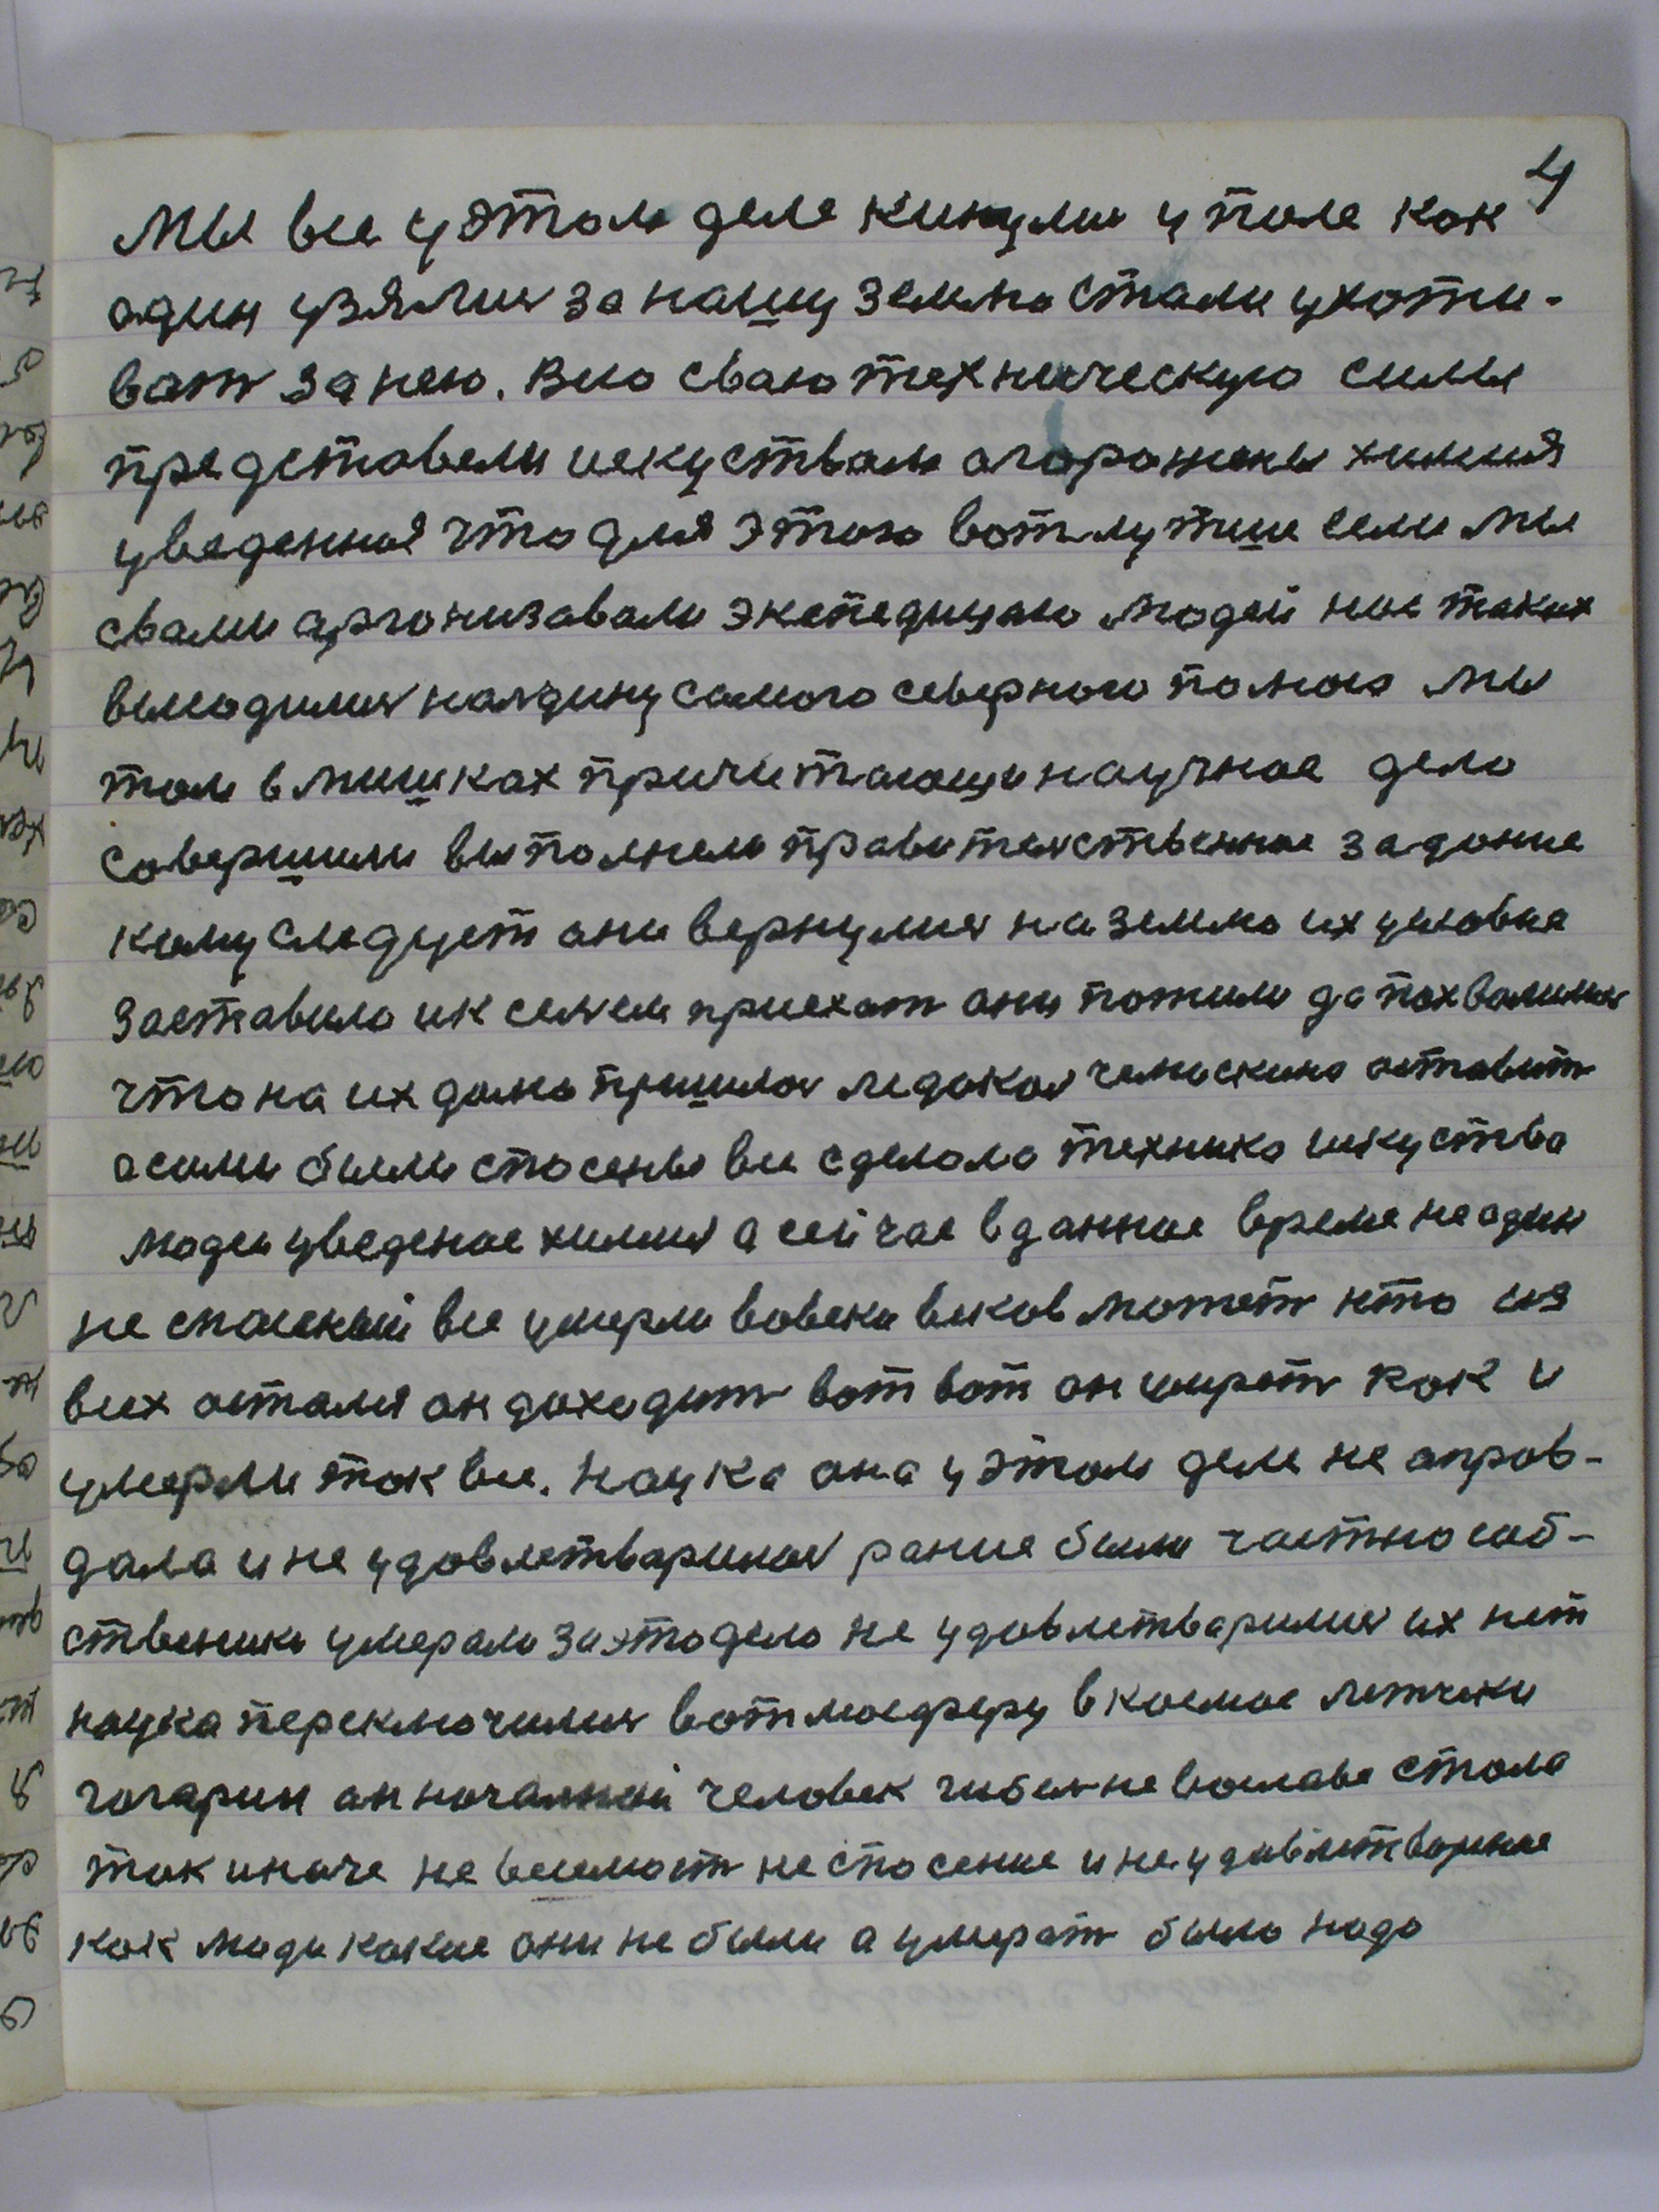 4
Мы все у этом деле кинулис у поле как
один узялис за нашу землю стали ухоти-
ват за нею. Всю сваю техническую силы
представели искуствам агорожены химия
уведенная что для этого вот лутше если мы
свами арганизавали экспедицию людей нас таких
высодилис налдину самого северного полюса мы
там в мишках причитающи научное дело
совершили выполнели правителственное задание
кому следует они вернулис на землю их условие
заставило ик сем ем приехат они пожили да похвалилис
что на их долю пришлос ледокол челюскина оставит
а сами были спасены все сделала техника искуства
люди уведеное химия а сейчас в данное время не один
не спасеный все умерли вовеки веков может кто из
всех остался он доходит вот вот он умрет как и
умерли так все. Наука она у этом деле не оправ-
дала и не удовлетварилас ранше были частно соб-
ственики умерали за это дело не удовлетварилис их нет
наука переключилис в отмосферу в космос летчики
гагарин он началной человек гибел не во славе стала
так иначе не весемост не спосение и не удовлетварение
как люди какие они не были а умерат было надо